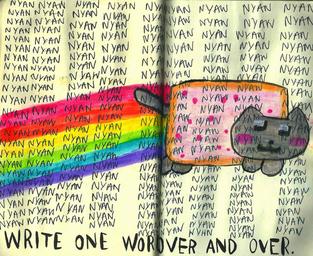 NYAN NYAN NYAN NYAN NYAN NYAW NYAN
NYAN NYAN NYAN NYAN NYAN NYAN NYAN
NYAN NYAN NYAN NYAN NYAN NYAN NYAN
NYAN NYAN NYAN NYAN NYAN NYAN NYAN
NYAN NYAN NYAN NYAN NYAN NYAN NYAN
NYAN NYAN NYAN NYAN NYAN NYAN NYAN
NYAN NYAN NYAN NYAN NYAN NYAN NYAN
NYAN NYAN NYAN NYAN NYAN NYAN
NYAN NYAN NYAN NYAN NYAN
NYAN NYAN NYAN NYAN
NYAN NYAN NYAN NYAN
NYAN NYAN NYAN NYAN
NYAN NYAN NYAN NYAN
NYAN NYAN NYAN NYAN
NYAN NYAN NYAN NYAN NYAN NYAN
NYAN NYAN NYAN NYAN NYAN NYAN NYAN
NYAN NYAN NYAN NYAN NYAN NYAN NYAN
NYAN NYAN NYAN NYAN NYAN NYAN NYAN
NYAN NYAN NYAN NYAN NYAN NYAN NYAN
WRITE ONE WORD OVER AND OVER.